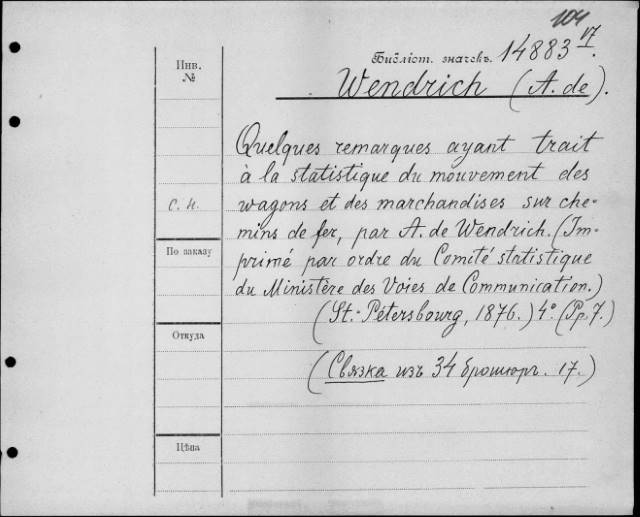 104
Библіот. значекъ. 14883 17/I.
Wendrich (A. de).
Инв.
№
Quelques remarques ayant trait
à la statistique du mouvement des
wagons et des marchandises sur che-
mins de fer, par A. de Wendrich. (Im-
primé par ordre du Comité statistique
du Ministère des Voies de Communication.)
(St.-Pétersbourg, 1876.) 4º. (Pp. 7.)
(Связка изъ 34 брошюр. 17.)
С. Н.
По заказу
Откуда
Цѣна